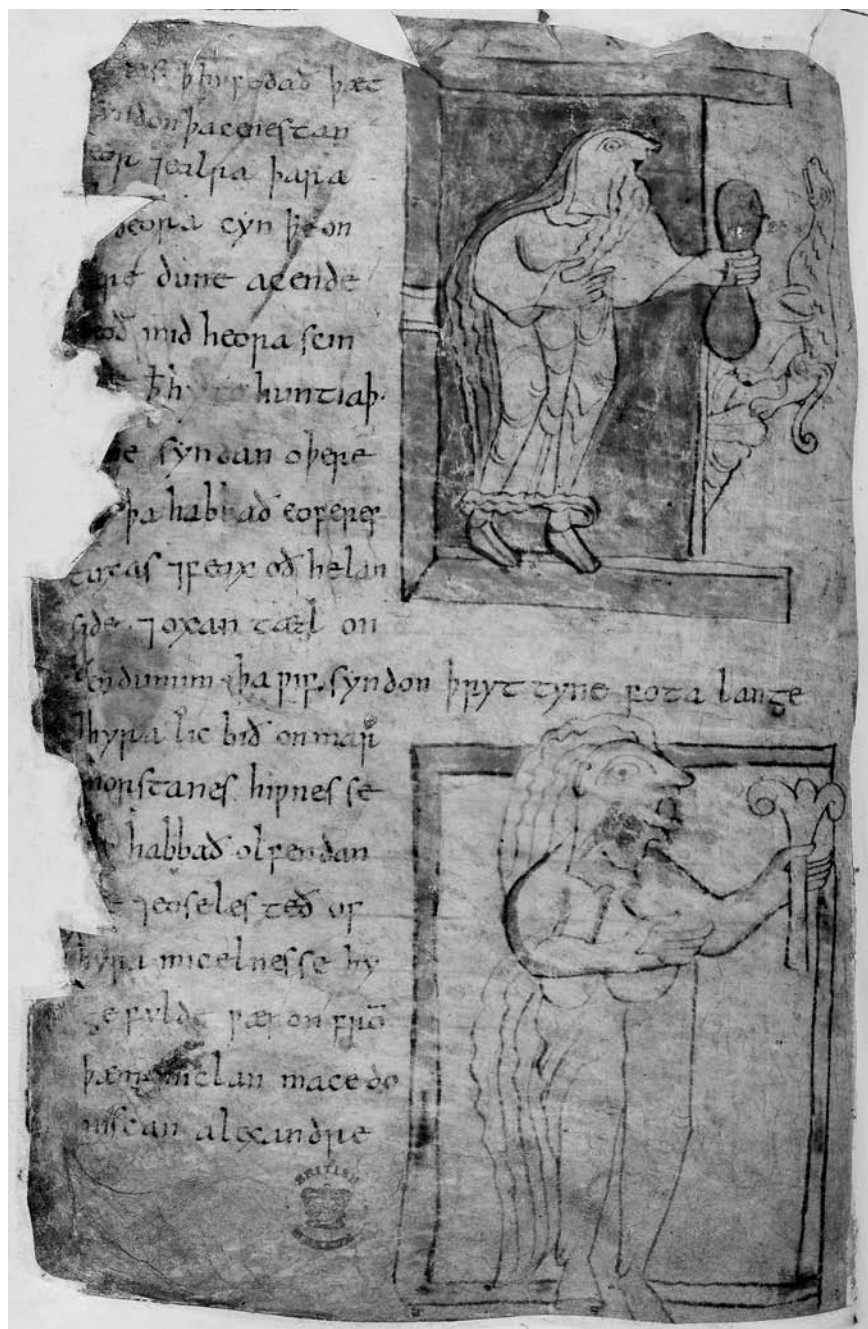 ꝥ hy fedað þæt
syndon þa cenestan
deor ⁊ ealra þara
deora cyn þe on
dune acende
mid heora scin
ꝥ hy to huntiaþ·
syndan oþere
þa habbað eoferes
tuxas ⁊ feax oð helan
side ⁊ oxan tægl on
lendunum þa ƿif syndon þryttyne fota lange
⁊ hyra lic bið on mar
morstanes hiƿnesse
habbað olfendan
⁊ eoseles teð of
hyra micelnesse hy
gefylde ƿæron frō
þæm miclan macedo
niscan alexandre
BRITISH